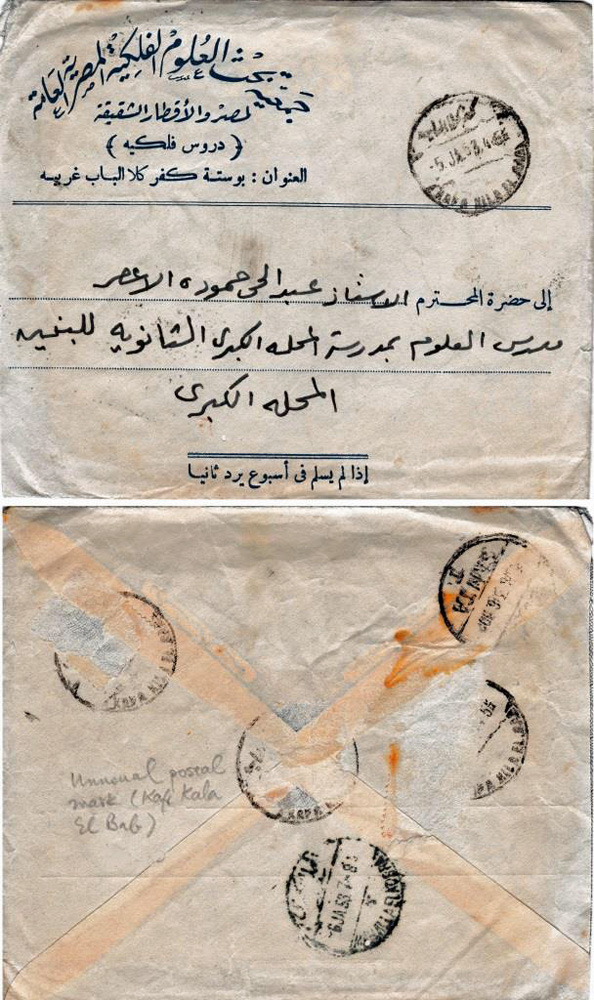 جمعية بحث العلوم الفلكية المصرية العامة
لمصر والأقطار الشقيقة
( دروس فلكيه )
العنوان : بوستة كفر كلا الباب غربيه
5 JA 53
KAFR KILA EL BAB
إلى حضرة المحترم الاستاذ عبد الحى حموده الاعصر
مدرس العلوم بمدرسة المحله الكبرى الثانويه للبنين
المحله الكبرى
إذا لم يسلم فى أسبوع يرد ثانيا
Unusual postal
mark (Kafr Kala
El Bab)
6 JA 53 7-